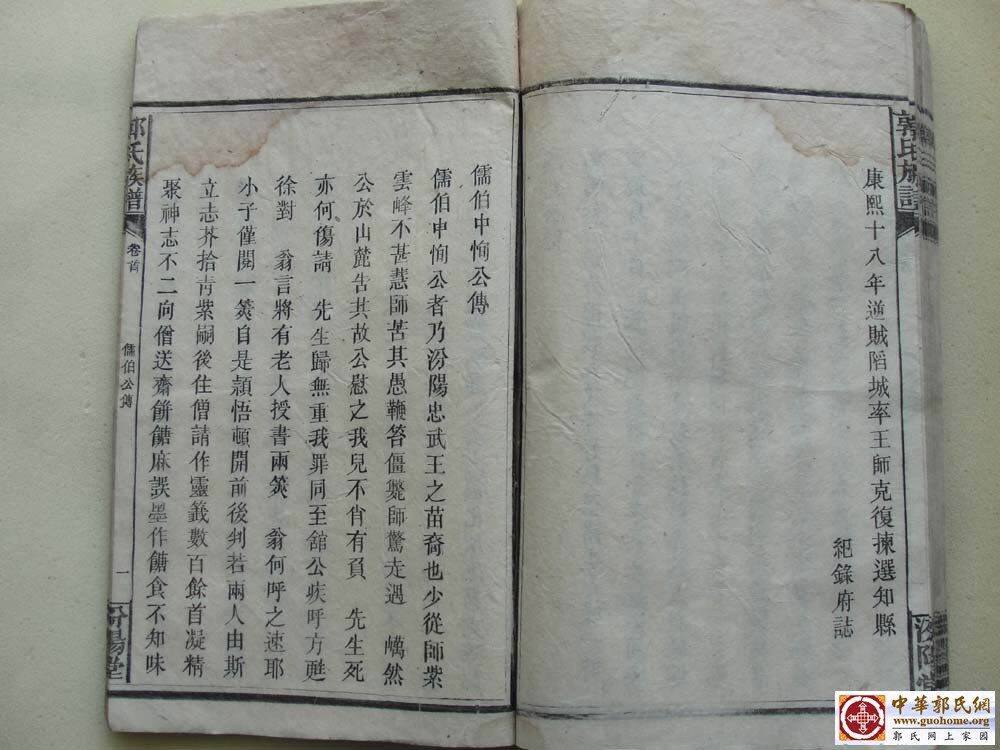 郭氏族譜
康熙十八年逆賊陷城率王師克復揀選知縣
紀錄府誌
汾陽堂
儒伯申恂公傳
儒伯申恂公者乃汾陽忠武王之苗裔也少從師紫
雲峰不甚慧師苦其愚鞭笞僵斃師驚走遇 巂然
公於山麓告其故公慰之我兒不肖有負 先生死
亦何傷請 先生歸無重我罪同至舘公疾呼方甦
徐對 翁言將有老人授書兩筴 翁何呼之速耶
小子僅閱一筴自是穎悟頓開前後判若兩人由斯
立志芥拾青紫嗣後住僧請作靈籤數百餘首凝精
聚神志不二向僧送齋餅餹麻誤墨作餹食不知味
郭氏族譜
卷首
儒伯公傳
一
汾陽堂
中華郭氏網
www.guohome.org
郭氏網上家園